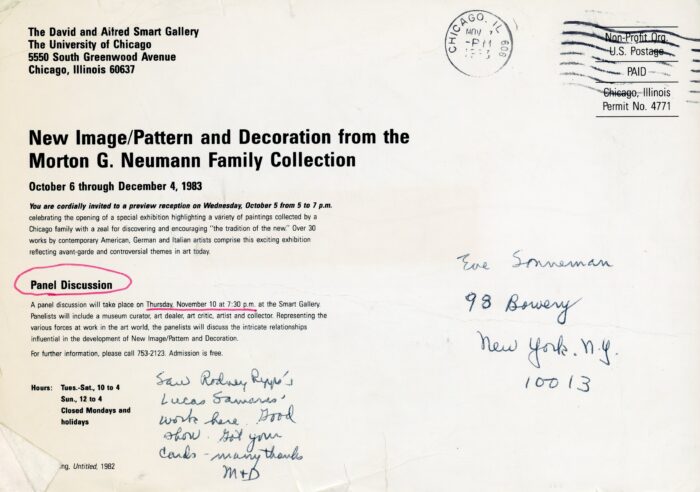 The David and Alfred Smart Gallery
The University of Chicago
5550 South Greenwood Avenue
Chicago, Illinois 60637
CHICAGO, IL 606
NOV
PM
Non-Profit Org.
U.S. Postage
PAID
Chicago, Illinois
Permit No. 4771
New Image/Pattern and Decoration from the
Morton G. Neumann Family Collection
October 6 through December 4, 1983
You are cordially invited to a preview reception on Wednesday, October 5 from 5 to 7 p.m.
celebrating the opening of a special exhibition highlighting a variety of paintings collected by a
Chicago family with a zeal for discovering and encouraging "the tradition of the new." Over 30
works by contemporary American, German and Italian artists comprise this exciting exhibition
reflecting avant-garde and controversial themes in art today.
Panel Discussion
A panel discussion will take place on Thursday, November 10 at 7:30 p.m. at the Smart Gallery.
Panelists will include a museum curator, art dealer, art critic, artist and collector. Representing the
various forces at work in the art world, the panelists will discuss the intricate relationships
influential in the development of New Image/Pattern and Decoration.
For further information, please call 753-2123. Admission is free.
Hours: Tues.-Sat., 10 to 4
Sun., 12 to 4
Closed Mondays and
holidays
Eve Sonneman
98 Bowery
New York. N.Y.
10013
Saw Rodney Ripps's
Lucas Samaras'
work here. Good
show. Got your
cards - many thanks
M+D
Untitled, 1982